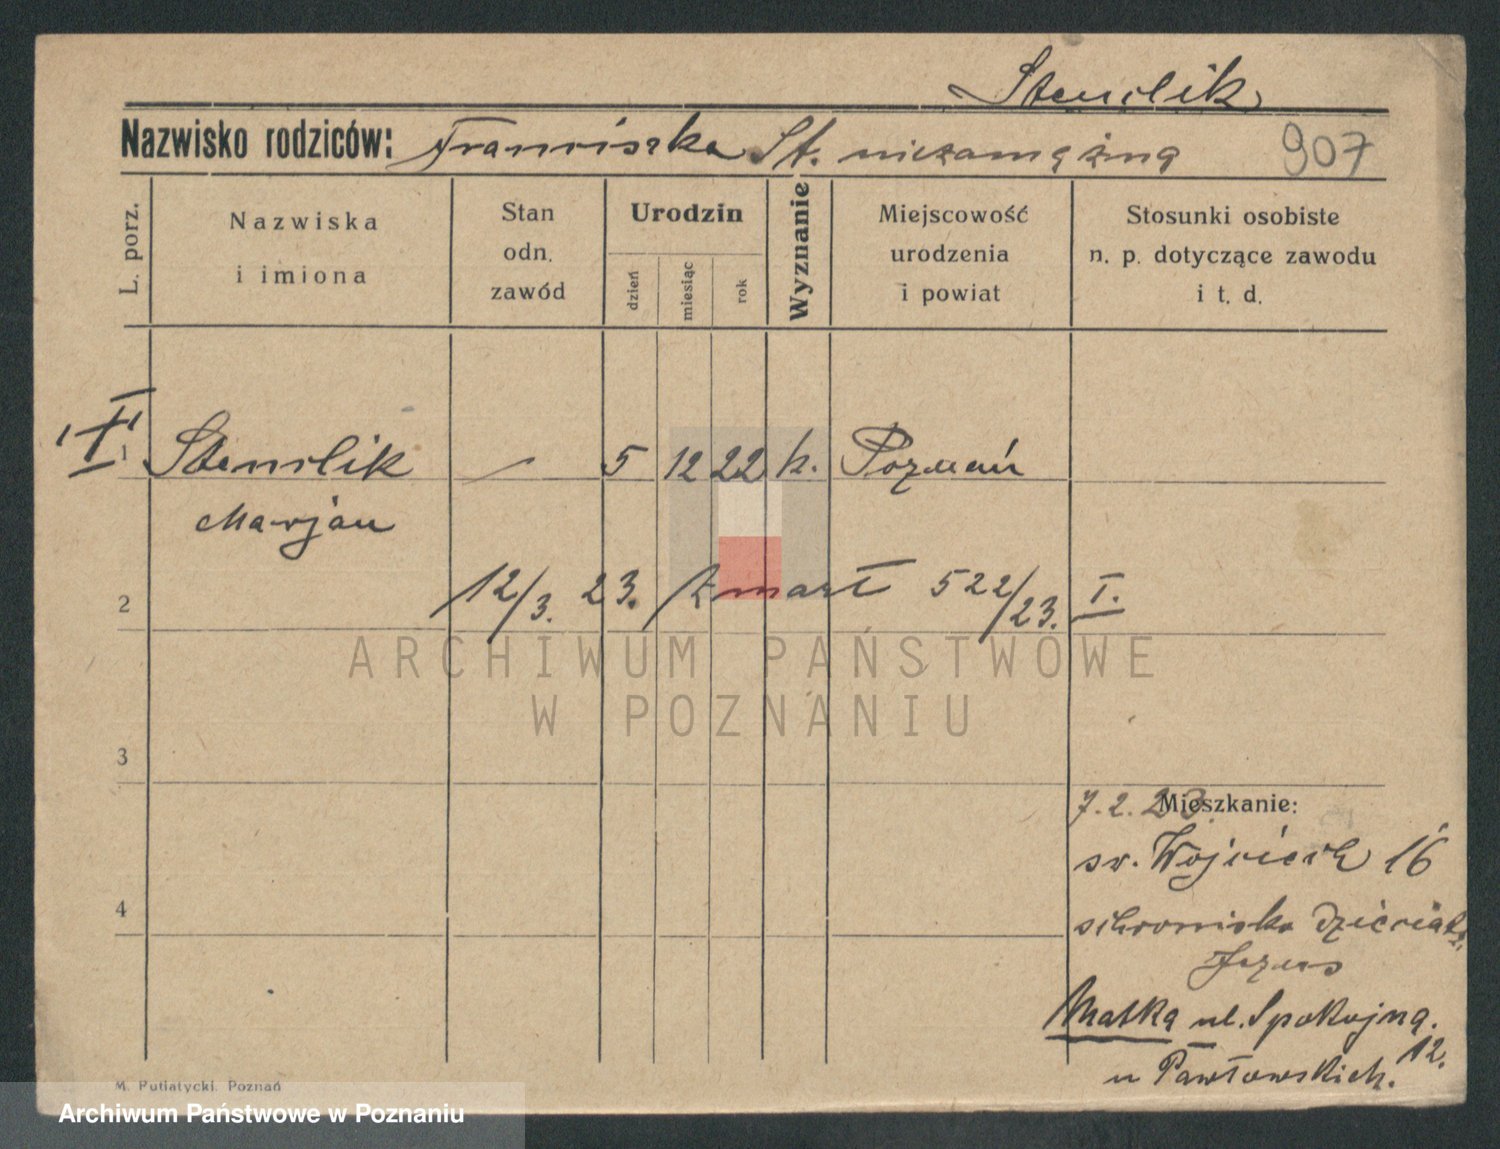 Stenclik
Nazwisko rodziców: Franciszka St. niezamężna 907
L. porz.
Nazwiska i imiona
Stan odn. zawód
Urodzin
dzień
miesiąc
rok
Wyznanie
Miejscowość urodzenia i powiat
Stosunki osobiste n. p. dotyczące zawodu i t. d.
I
1 Stenclik — 5 12 22 k. Poznań
Marjan
2 12/3. 23. zmarł 522/23. I.
ARCHIWUM PAŃSTWOWE
W POZNANIU
3
7.2.23. Mieszkanie:
św. Wojciech 16
4
schronisko Dzieciątk.
Jezus
Matka ul. Spokojna.
12.
u Pawłowskich.
M. Putiatycki, Poznań
Archiwum Państwowe w Poznaniu